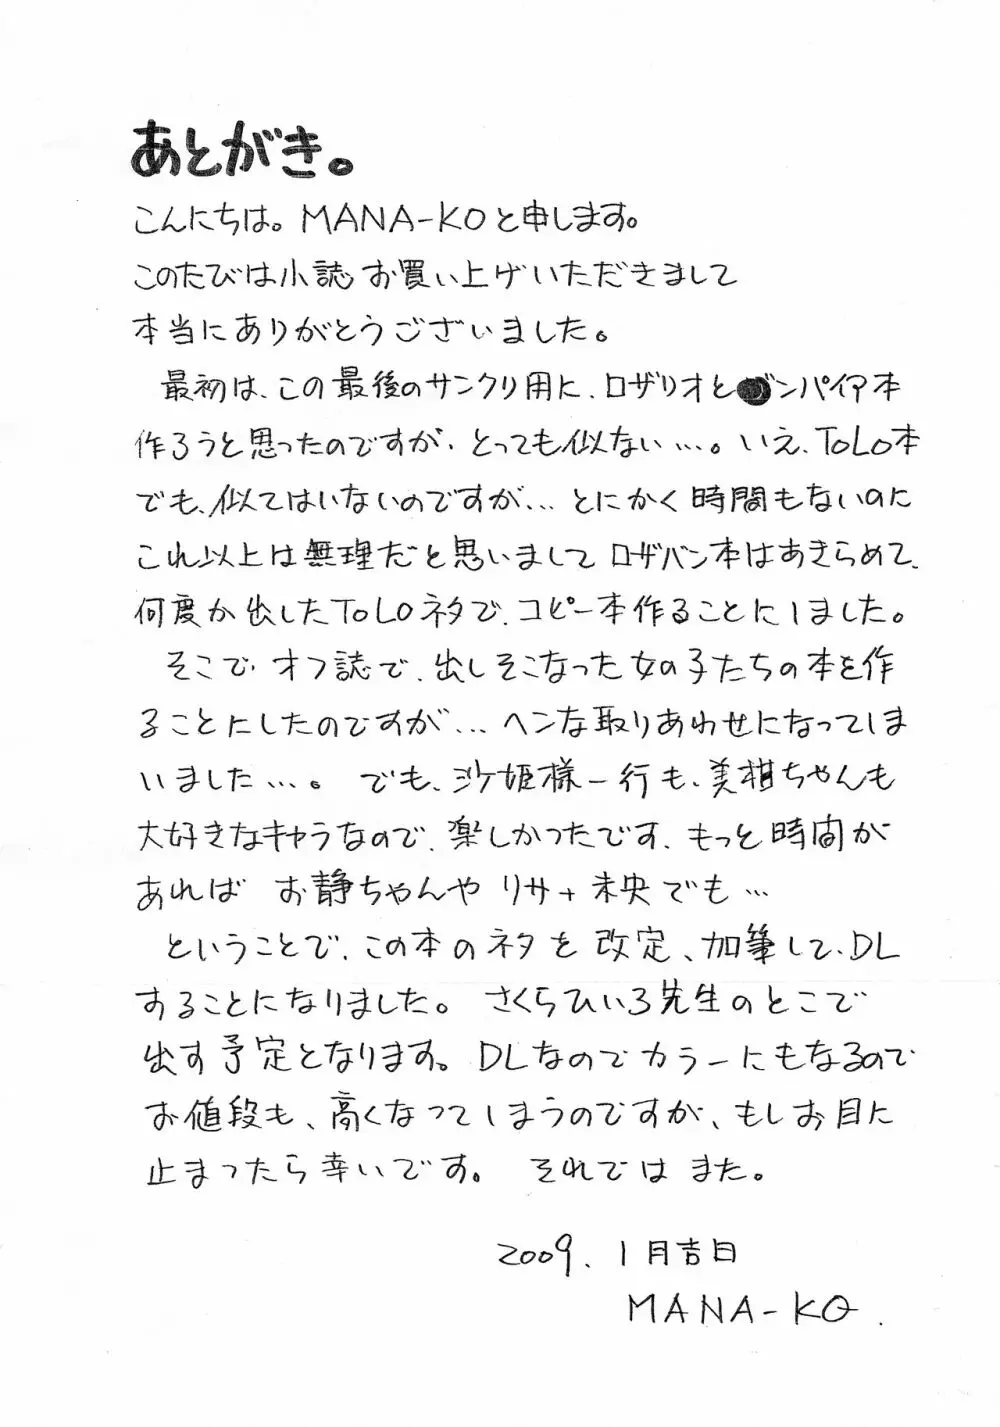 あとがき。
こんにちは。MANA-KOと申します。
このたびは小誌お買い上げいただきまして
本当にありがとうございました。
最初は、この最後のサンクリ用に、ロザリオとバンパイア本
作ろうと思ったのですが、とっても似ない…。いえ、ToLo本
でも、似てはいないのですが…とにかく時間もないのに
これ以上は無理だと思いまして ロザバン本はあきらめて、
何度か出したToLoネタで、コピー本作ることにしました。
そこで オフ誌で、出しそこなった女の子たちの本を作
ることにしたのですが…ヘンな取りあわせになってしま
いました…。でも、沙姫様一行も、美柑ちゃんも
大好きなキャラなので、楽しかったです、もっと時間が
あれば お静ちゃんや リサ+未央でも…
ということで、この本のネタを改定、加筆して、DL
することになりました。さくらひいろ先生のとこで
出す予定となります。DLなのでカラーにもなるので
お値段も、高くなってしまうのですが、もしお目に
止まったら幸いです。それでは また。
2009.1月吉日
MANA-KO.